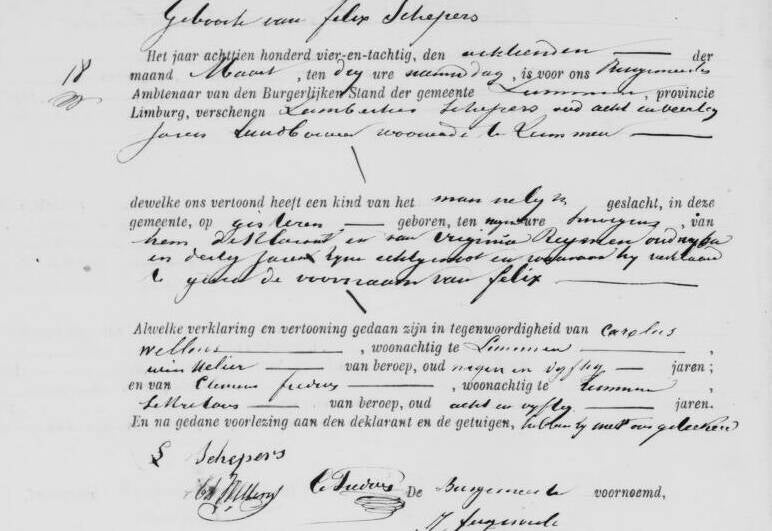 Geboorte van felix Schepers
18
Het jaar achttien honderd vier-en-tachtig, den achtienden der
maand Maart, ten dry ure namiddag, is voor ons Burgemeester
Ambtenaar van den Burgerlijken Stand der gemeente Lummen, provincie
Limburg, verschenen Lambertus Schepers oud acht en veertig
jaren Landbouwer woonende te Lummen
dewelke ons vertoond heeft een kind van het mannelyk geslacht, in deze
gemeente, op gisteren geboren, ten ure smorgens, van
hem deklarant en van Virginia oud
en dertig jaren zyne echtgenoot en waaraan hy verklaard
te geven de voornaam van felix
Alwelke verklaring en vertooning gedaan zijn in tegenwoordigheid van Carolus
Willems, woonachtig te Lummen,
van beroep, oud negen en vyftig jaren;
en van Clemens, woonachtig te Lummen,
Sekretaris van beroep, oud acht en vyftig jaren.
En na gedane voorlezing aan den deklarant en de getuigen, hebben zy met ons geteekend
L Schepers
De Burgemeester voornoemd,